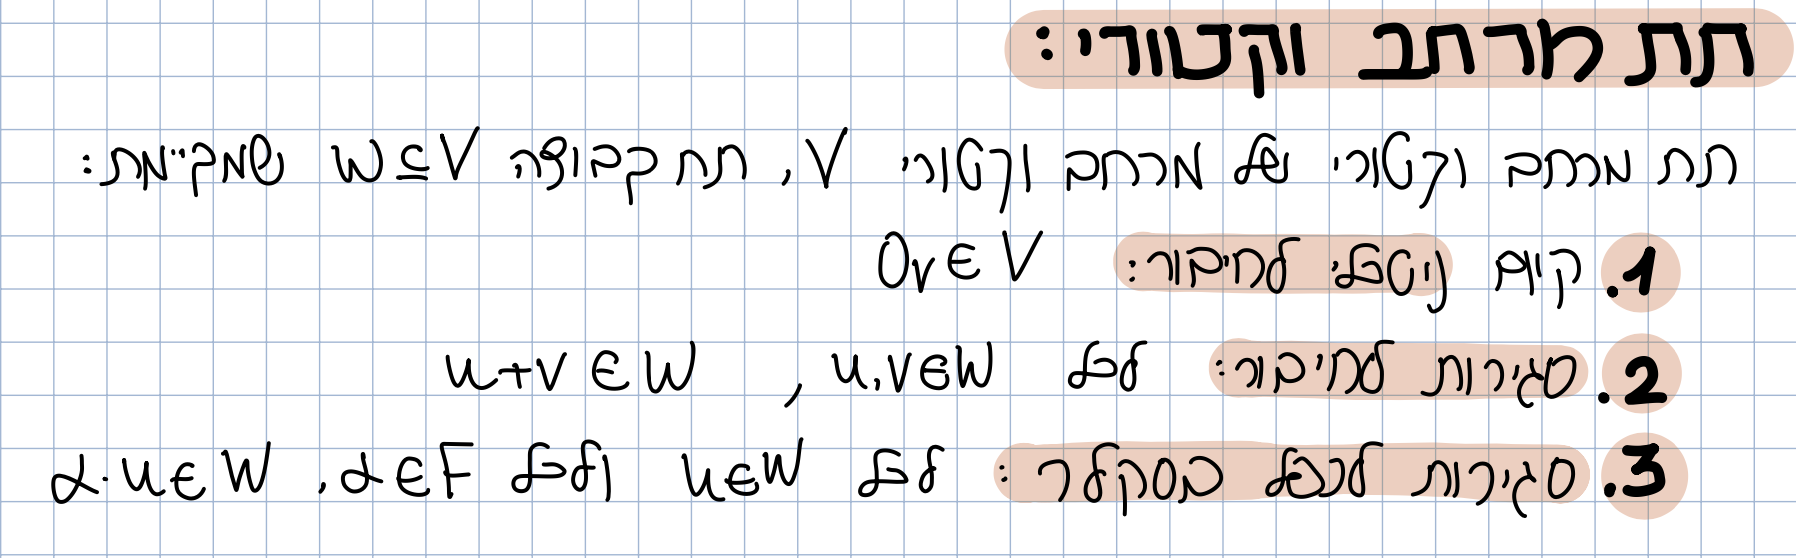 תת מרחב וקטורי:
תת מרחב וקטורי של מרחב וקטורי V, תת קבוצה W⊆V שמקיימת:
1. קיום ניטרלי לחיבור: 0v∈V
2. סגירות לחיבור: לכל u,v∈W , u+v∈W
3. סגירות לכפל בסקלר: לכל u∈W ולכל α∈F, α·u∈W